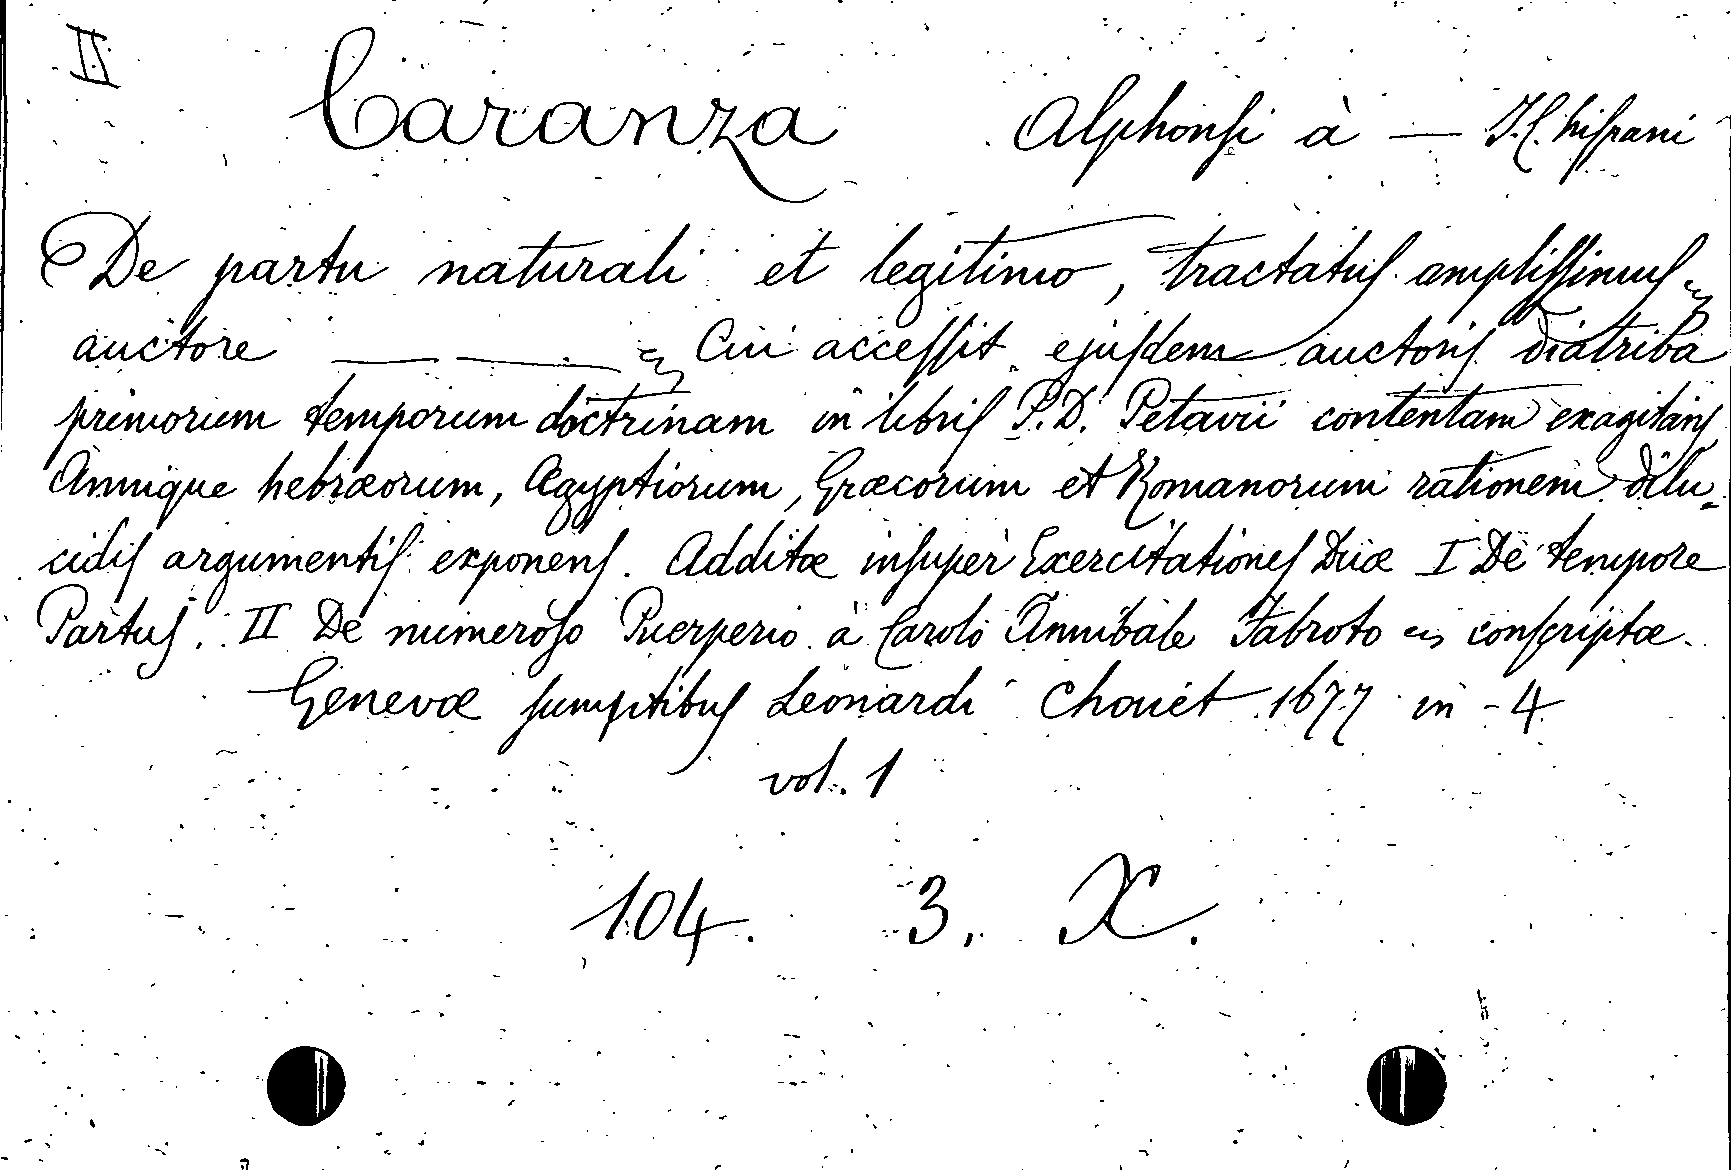 II
Caranza Alphonsi à — J.C. hispani
De partu naturali et legitimo, tractatus amplissimus
auctore — — Cui accessit ejusdem auctoris diatriba
primorum temporum doctrinam in libris P.D. Petavii contentam exagitans
Annique hebræorum, Ægyptiorum, Græcorum et Romanorum rationem dilu-
cidis argumentis exponens. Additæ insuper Exercitationes Duæ I De tempore
Partus. II De numeroso Puerperio à Carolo Annibale Fabroto conscriptæ.
Genevæ sumptibus Leonardi Chouët 1677 in-4
vol. 1
104. 3. X.